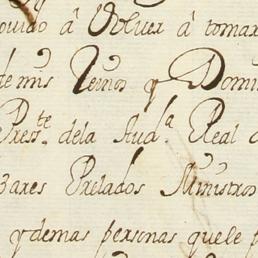 ouido â Voluer â tomar
de mis Reinos y Domi
Presste dela Auda Real
zares Prelados Ministros
y demas personas quele p